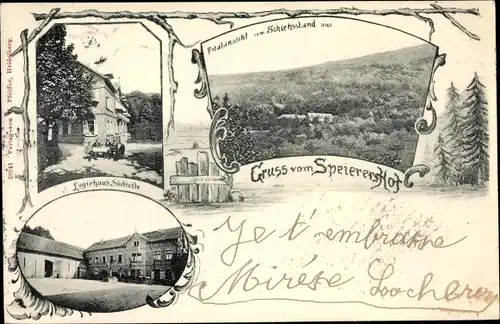 Totalansicht vom Schiesstand aus
Logirhaus, Südseite
Gruss vom Speierers Hof
Je t'embrasse
22241 Verlag von Pfeiffer, Heidelberg.